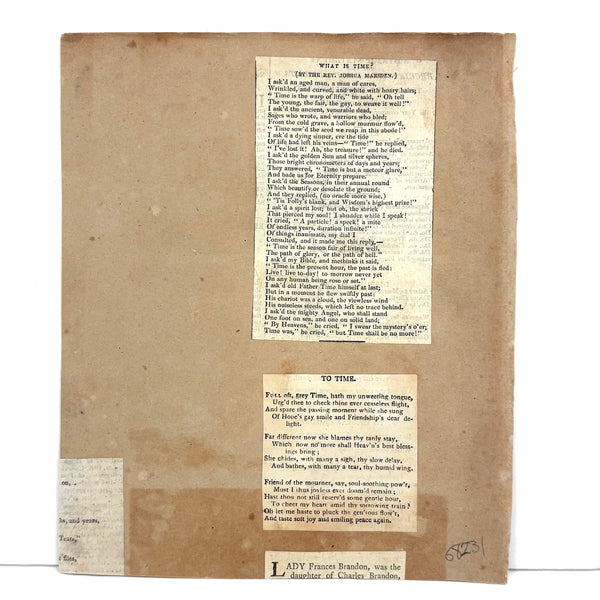 WHAT IS TIME?
(BY THE REV. JOSHUA MARSDEN.)
I ask'd an aged man, a man of cares,
Wrinkled, and curved, and white with hoary hairs;
"Time is the warp of life," he said, "Oh tell
The young, the fair, the gay, to weave it well!"
I ask'd the ancient, venerable dead,
Sages who wrote, and warriors who bled;
From the cold grave, a hollow murmur flow'd,
"Time sow'd the seed we reap in this abode!"
I ask'd a dying sinner, ere the tide
Of life had left his veins—"Time!" he replied,
"I've lost it! Ah, the treasure!" and he died.
I ask'd the golden Sun and silver spheres,
Those bright chronometers of days and years;
They answered, "Time is but a meteor glare,"
And bade us for Eternity prepare.
I ask'd the Seasons, in their annual round
Which beautify or desolate the ground;
And they replied, (no oracle more wise,)
"'Tis Folly's blank, and Wisdom's highest prize!"
I ask'd a spirit lost; but oh, the shriek
That pierced my soul! I shudder while I speak!
It cried, "A particle! a speck! a mite
Of endless years, duration infinite!"
Of things inanimate, my dial I
Consulted, and it made me this reply,—
"Time is the season fair of living well,
The path of glory, or the path of hell."
I ask'd my Bible, and methinks it said,
"Time is the present hour, the past is fled:
Live! live to-day! to morrow never yet
On any human being rose or set."
I ask'd old Father Time himself at last;
But in a moment he flew swiftly past:
His chariot was a cloud, the viewless wind
His noiseless steeds, which left no trace behind.
I ask'd the mighty Angel, who shall stand
One foot on sea, and one on solid land;
"By Heavens," he cried, "I swear the mystery's o'er;
Time was," he cried, "but Time shall be no more!"
TO TIME.
FULL oft, grey Time, hath my unweeting tongue,
Urg'd thee to check thine ever ceaseless flight,
And spare the passing moment while she sung
Of Hope's gay smile and Friendship's dear de-
light.
Far different now she blames thy tardy stay,
Which now no'more shall Heav'n's best bless-
ings bring;
She chides, with many a sigh, thy slow delay,
And bathes, with many a tear, thy humid wing.
Friend of the mourner, say, soul-soothing pow'r,
Must I thus joyless ever doom'd remain;
Hast thou not still reserv'd some gentle hour,
To cheer my heart amid thy sorrowing train?
Oh let me haste to pluck the gen'rous flow'r,
And taste soft joy and smiling peace again.
on.
and years,
flies,
LADY Frances Brandon, was the
daughter of Charles Brandon,
68231